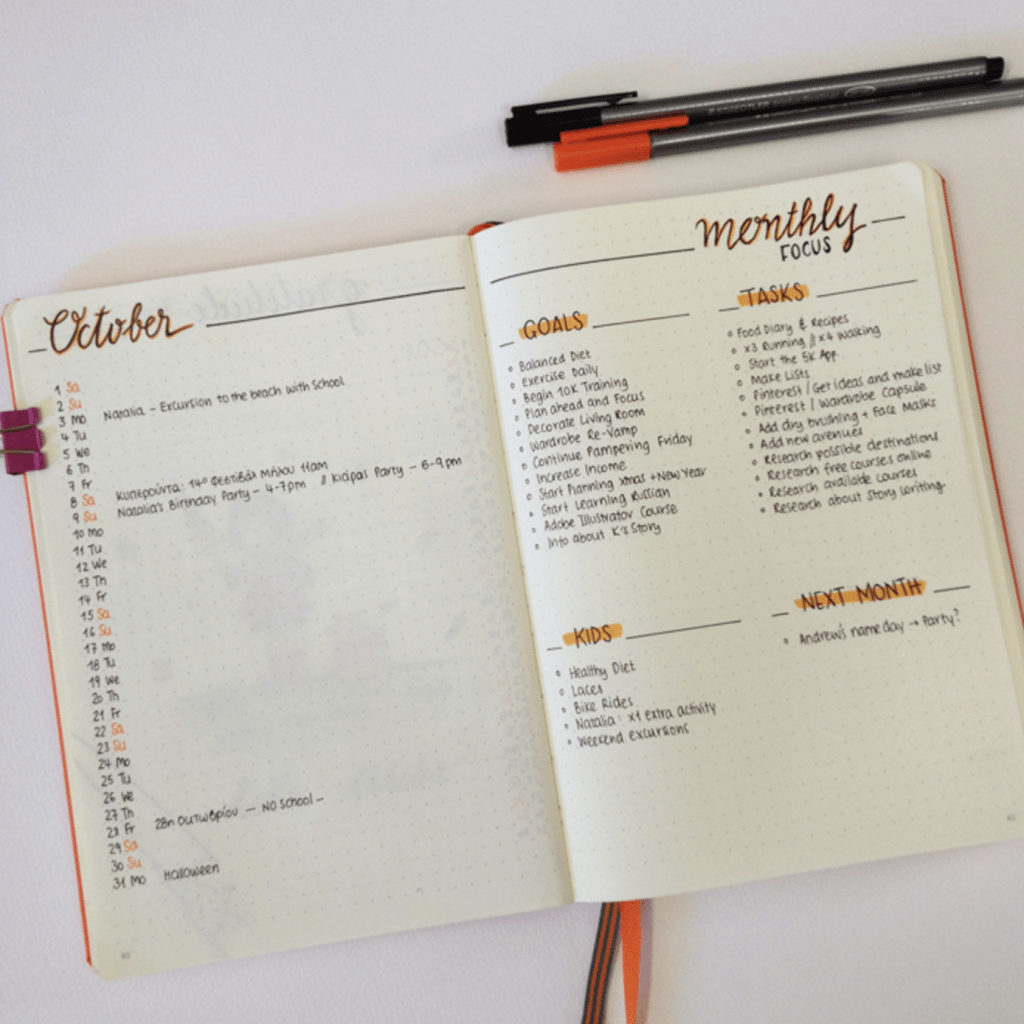 October
1 Sa
2 Su
3 Mo Natalia - Excursion to the beach with School
4 Tu
5 We
6 Th
7 Fr
8 Sa Κυπερούντα: 14ο Φεστιβάλ Μήλου 11am
9 Su Natalia's Birthday Party - 4-7pm // Κιάρας Party - 6-9pm
10 Mo
11 Tu
12 We
13 Th
14 Fr
15 Sa
16 Su
17 Mo
18 Tu
19 We
20 Th
21 Fr
22 Sa
23 Su
24 Mo
25 Tu
26 We
27 Th
28 Fr 28η Οκτωβρίου - NO School -
29 Sa
30 Su
31 Mo Halloween
monthly
FOCUS
GOALS
Balanced Diet
Exercise Daily
Begin 10K Training
Plan ahead and Focus
Decorate Living Room
Wardrobe Re-Vamp
Continue Pampering Friday
Increase Income
Start Planning Xmas + New Year
Start Learning Russian
Adobe Illustrator Course
Info about K's Story
TASKS
Food Diary & Recipes
x3 Running // x4 Walking
Start the 5K App
Make Lists
Pinterest / Get ideas and make list
Pinterest / Wardrobe Capsule
Add dry brushing + Face Masks
Add new avenues
Research possible destinations
Research free courses online
Research available courses
Research about Story Writing
KIDS
Healthy Diet
Laces
Bike Rides
Natalia: x1 extra activity
Weekend excursions
NEXT MONTH
Andrew's nameday → Party?